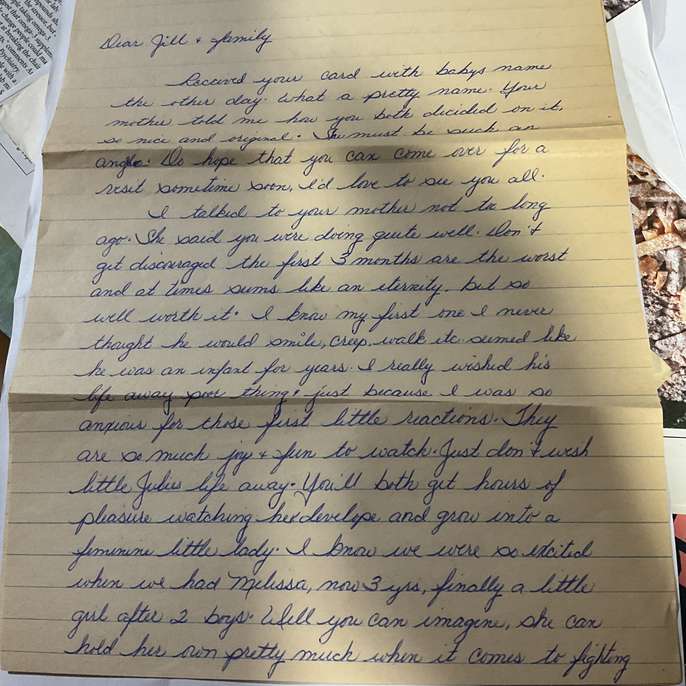 Dear Jill + family
Received your card with babys name
the other day. What a pretty name. Your
mother told me how you both decided on it,
so nice and original. She must be such an
angle. Do hope that you can come over for a
visit sometime soon, I'd love to see you all.
I talked to your mother not too long
ago. She said you were doing quite well. Don't
get discouraged the first 3 months are the worst
and at times seems like an iternity, but so
well worth it. I know my first one I never
thought he would smile, creep, walk etc seemed like
he was an infant for years. I really wished his
life away poor thing + just because I was so
anxious for those first little reactions. They
are so much joy + fun to watch. Just don't wish
little Julies life away. You'll both get hours of
pleasure watching her develope and grow into a
feminine little lady. I know we were so excited
when we had Melissa, now 3 yrs, finally a little
girl after 2 boys. Well you can imagine, she can
hold her own pretty much when it comes to fighting